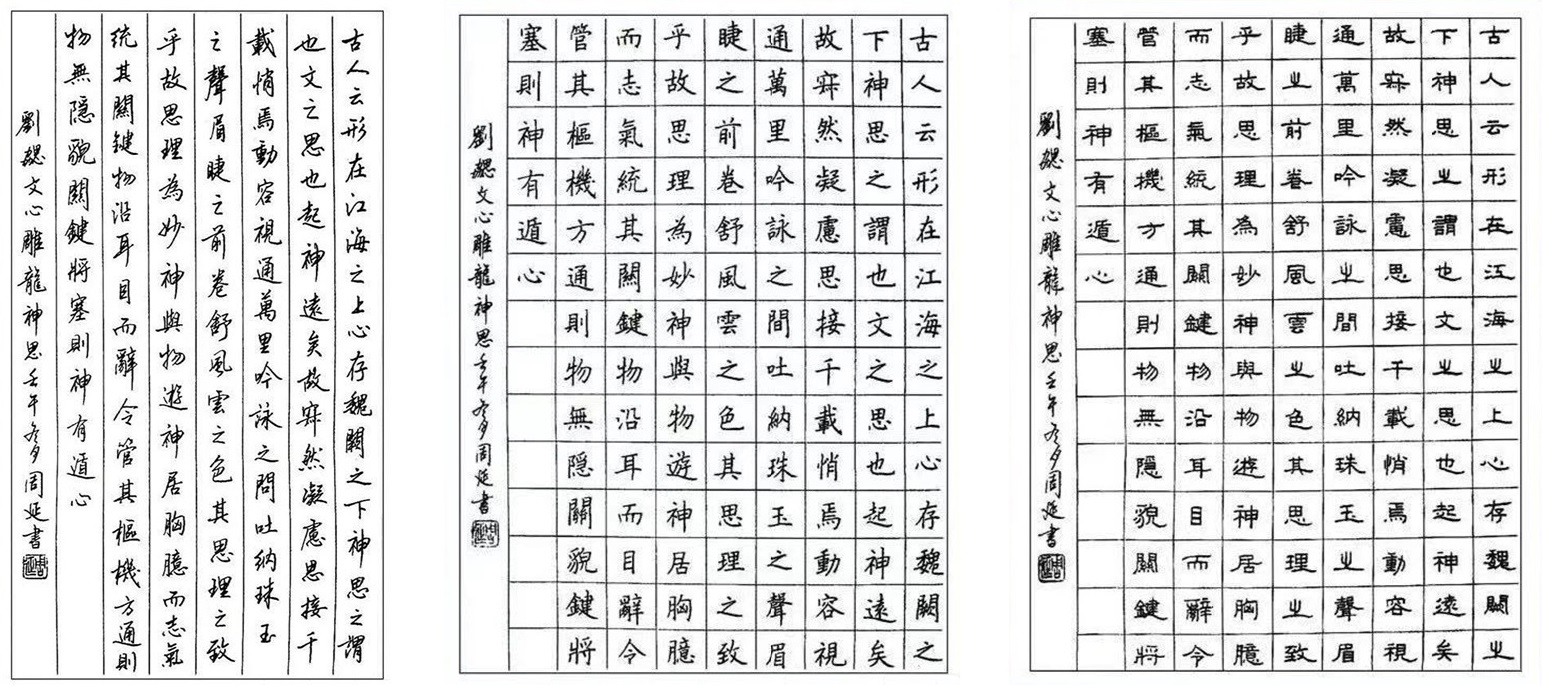 古人云形在江海之上心存魏闕之下神思之謂
也文之思也起神遠矣故寂然凝慮思接千
載悄焉動容視通萬里吟詠之間吐納珠玉
之聲眉睫之前卷舒風雲之色其思理之致
乎故思理為妙神與物遊神居胸臆而志氣
統其關鍵物沿耳目而辭令管其樞機方通則
物無隱貌關鍵將塞則神有遁心
劉勰文心雕龍神思壬午冬夕周延書
古人云形在江海之上心存魏闕之
下神思之謂也文之思也起神遠矣
故寂然凝慮思接千載悄焉動容視
通萬里吟詠之間吐納珠玉之聲眉
睫之前卷舒風雲之色其思理之致
乎故思理為妙神與物遊神居胸臆
而志氣統其關鍵物沿耳而目辭令
管其樞機方通則物無隱關貌鍵將
塞則神有遁心
劉勰文心雕龍神思壬午冬夕周延書
古人云形在江海之上心存魏闕之
下神思之謂也文之思也起神遠矣
故寂然凝慮思接千載悄焉動容視
通萬里吟詠之間吐納珠玉之聲眉
睫之前卷舒風雲之色其思理之致
乎故思理為妙神與物遊神居胸臆
而志氣統其關鍵物沿耳目而辭令
管其樞機方通則物無隱貌關鍵將
塞則神有遁心
劉勰文心雕龍神思壬午冬夕周延書